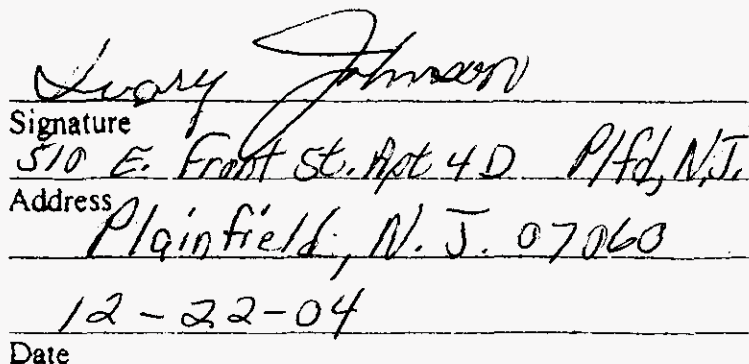 Ivory Johnson
Signature
510 E. Front St. Apt 4D Plfd, N.J.
Address
Plainfield, N.J. 07060
12-22-04
Date